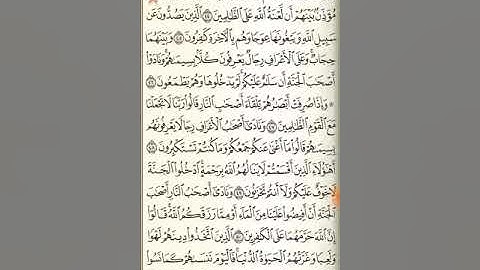 مُؤَذِّنٌۢ بَيْنَهُمْ أَن لَّعْنَةُ ٱللَّهِ عَلَى ٱلظَّـٰلِمِينَ ٤٤ ٱلَّذِينَ يَصُدُّونَ عَن
سَبِيلِ ٱللَّهِ وَيَبْغُونَهَا عِوَجًا وَهُم بِٱلْـَٔاخِرَةِ كَـٰفِرُونَ ٤٥ وَبَيْنَهُمَا
حِجَابٌ وَعَلَى ٱلْأَعْرَافِ رِجَالٌ يَعْرِفُونَ كُلًّۢا بِسِيمَىٰهُمْ وَنَادَوْا۟
أَصْحَـٰبَ ٱلْجَنَّةِ أَن سَلَـٰمٌ عَلَيْكُمْ لَمْ يَدْخُلُوهَا وَهُمْ يَطْمَعُونَ ٤٦
۞ وَإِذَا صُرِفَتْ أَبْصَـٰرُهُمْ تِلْقَآءَ أَصْحَـٰبِ ٱلنَّارِ قَالُوا۟ رَبَّنَا لَا تَجْعَلْنَا
مَعَ ٱلْقَوْمِ ٱلظَّـٰلِمِينَ ٤٧ وَنَادَىٰٓ أَصْحَـٰبُ ٱلْأَعْرَافِ رِجَالًا يَعْرِفُونَهُم
بِسِيمَىٰهُمْ قَالُوا۟ مَآ أَغْنَىٰ عَنكُمْ جَمْعُكُمْ وَمَا كُنتُمْ تَسْتَكْبِرُونَ ٤٨
أَهَـٰٓؤُلَآءِ ٱلَّذِينَ أَقْسَمْتُمْ لَا يَنَالُهُمُ ٱللَّهُ بِرَحْمَةٍ ٱدْخُلُوا۟ ٱلْجَنَّةَ
لَا خَوْفٌ عَلَيْكُمْ وَلَآ أَنتُمْ تَحْزَنُونَ ٤٩ وَنَادَىٰٓ أَصْحَـٰبُ ٱلنَّارِ أَصْحَـٰبَ
ٱلْجَنَّةِ أَنْ أَفِيضُوا۟ عَلَيْنَا مِنَ ٱلْمَآءِ أَوْ مِمَّا رَزَقَكُمُ ٱللَّهُ قَالُوٓا۟
إِنَّ ٱللَّهَ حَرَّمَهُمَا عَلَى ٱلْكَـٰفِرِينَ ٥٠ ٱلَّذِينَ ٱتَّخَذُوا۟ دِينَهُمْ لَهْوًا
وَلَعِبًا وَغَرَّتْهُمُ ٱلْحَيَوٰةُ ٱلدُّنْيَا فَٱلْيَوْمَ نَنسَىٰهُمْ كَمَا نَسُوا۟